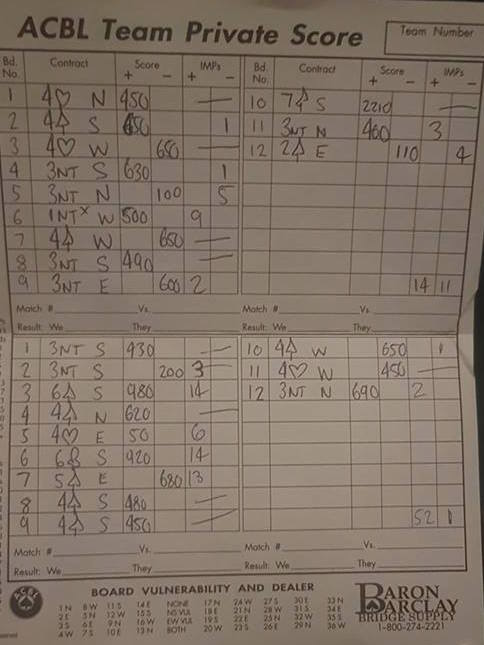 ACBL Team Private Score
Team Number
Bd. No. Contract Score + − IMPs + − Bd. No. Contract Score + − IMPs + −
1 4♡ N 450 — 10 7♤ S 2210 —
2 4♤ S 650 1 11 3NT N 460 3
3 4♡ W 650 — 12 2♤ E 110 4
4 3NT S 630 1
5 3NT N 100 5
6 1NTˣ W 500 9
7 4♤ W 650 —
8 3NT S 490 —
9 3NT E 600 2 14 11
Match # Vs. Match # Vs.
Result: We They Result: We They
1 3NT S 430 — 10 4♤ W 650 1
2 3NT S 200 3 11 4♡ W 450 —
3 6♤ S 980 14 12 3NT N 690 2
4 4♤ N 620 —
5 4♡ E 50 6
6 S 920 14
7 5♤ E 680 13
8 4♤ S 480 —
9 4♤ S 450 — 52 1
Match # Vs. Match # Vs.
Result: We They Result: We They
ACBL
BOARD VULNERABILITY AND DEALER
1N 8W 11S 14E NONE 17N 24W 27S 30E 33N
2E 5N 12W 15S NS VUL 18E 21N 28W 31S 34E
3S 6E 9N 16W EW VUL 19S 22E 25N 32W 35S
4W 7S 10E 13N BOTH 20W 23S 26E 29N 36W
BARON
BARCLAY
BRIDGE SUPPLY
1-800-274-2221